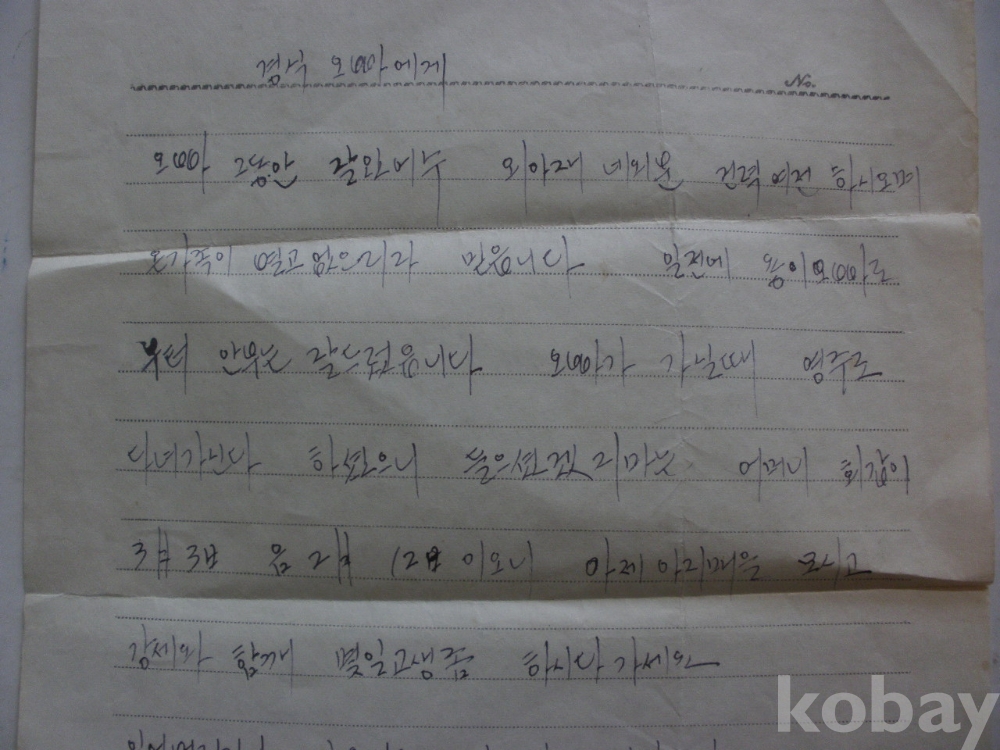 경식 오빠에게
No.
오빠 그동안 잘와비수 외아재 네외분 건력여전 하시오며
온가족이 별고없으리라 믿읍니다 일전에 왕이오빠로
부터 안부는 잘드렀읍니다 오빠가 가닐때 영주로
다녀가신다 하셨으니 들으셨겠지마는 어머니 회갑이
3月 3日 음 2月 12日 이오니 아제 아지매을 모시고
강세와 함께 몇일고생좀 하시다 가세요
kobay